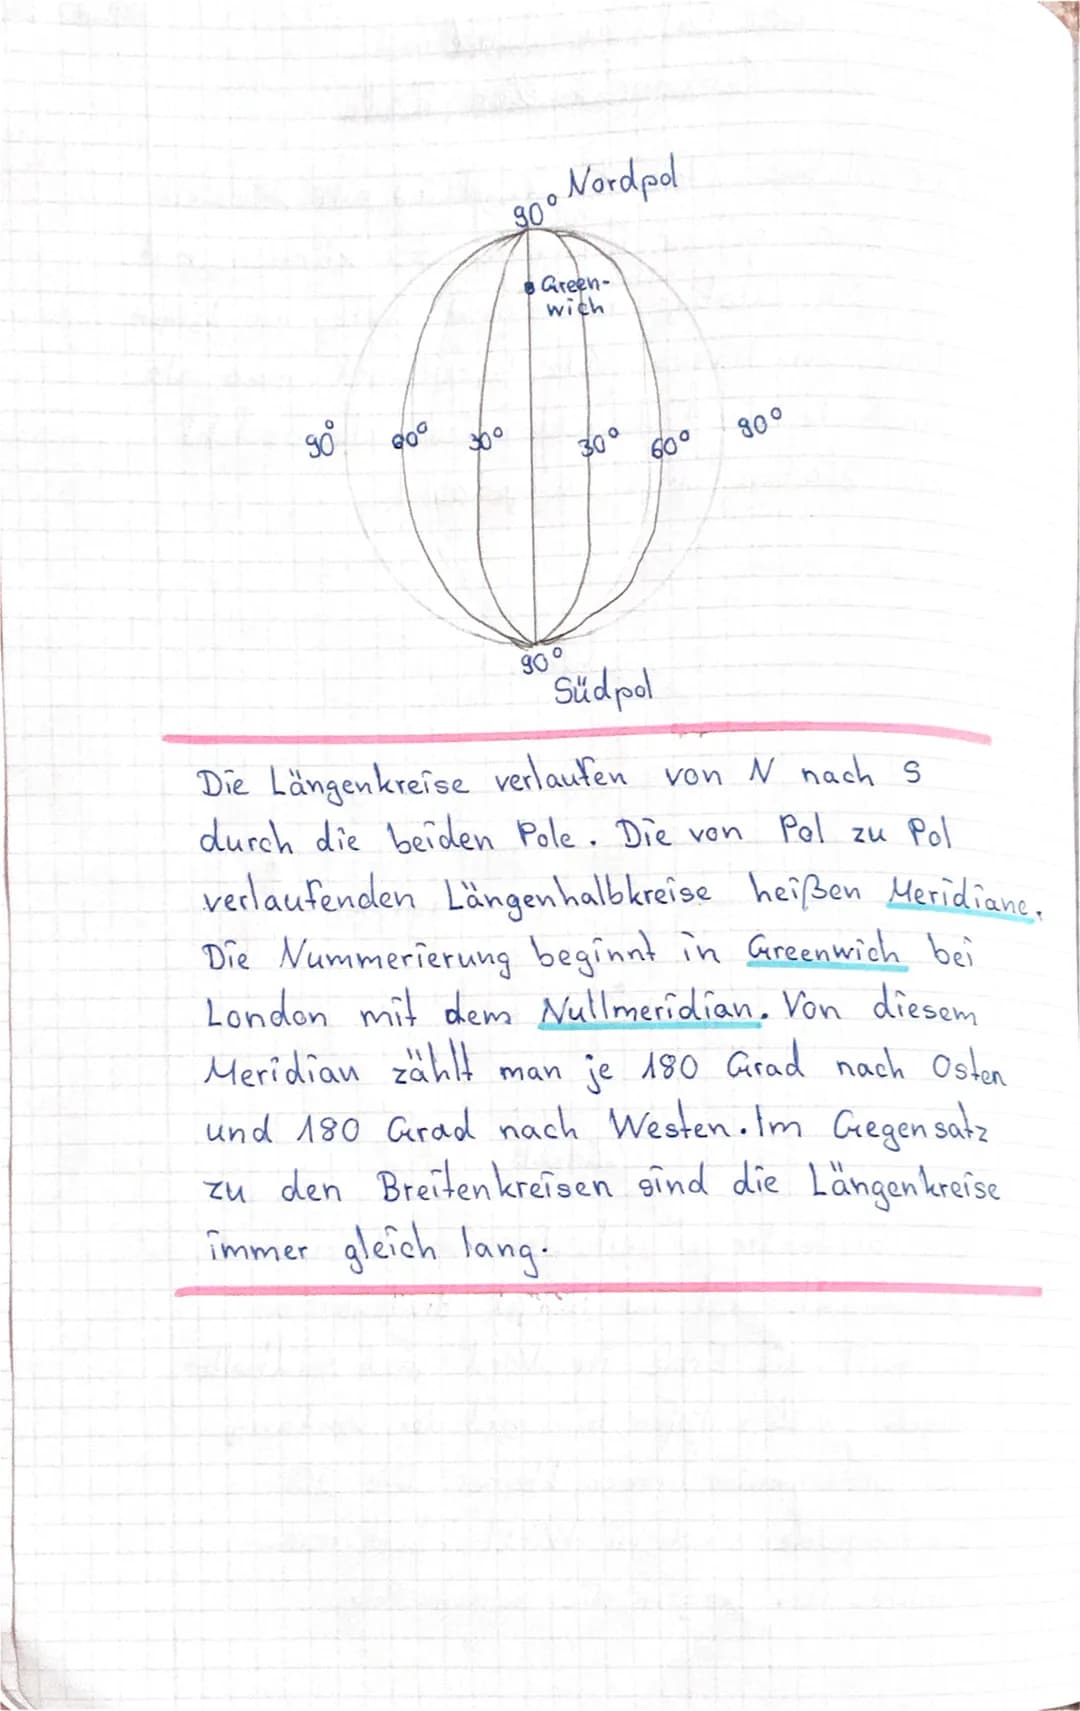 Nordpol
90°
Green-
wich
90° 60° 30° 30° 60° 90°
90°
Südpol
Die Längenkreise verlaufen von N nach S
durch die beiden Pole. Die von Pol zu Pol
verlaufenden Längenhalbkreise heißen Meridiane.
Die Nummerierung beginnt in Greenwich bei
London mit dem Nullmeridian. Von diesem
Meridian zählt man je 180 Grad nach Osten
und 180 Grad nach Westen. Im Gegensatz
zu den Breitenkreisen sind die Längenkreise
immer gleich lang.